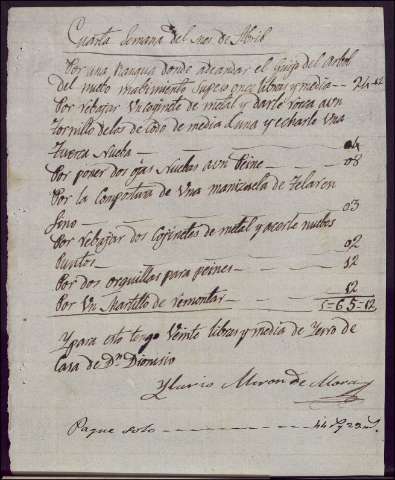 Cuarta Semana del mes de Abril
Por una Rangua donde adeandar el Guijo del Arbol
del nuebo mobimiento Supeso onze libras y media - - 24 - 12
Por rebajar Un cojinete de metal y darle rosca a un
tornillo delos de Coro de media Luna y echarle Una
tuerca Nueba 04
Por poner dos ojas Nuebas a un Peine - 08
Por la Conpostura de Una maniezuela de Telar en
fino - 03
Por Rebajar dos Cojinetes de metal y acerle nuebos
Puntos - 02
Por dos orquillas para peines - 12
Por Un Martillo de remontar - 12
S - 65 - 12
Y para esto tengo Veinte libras y media de Yerro de
Casa de Dn Dionisio
Ylario Miron de Mora
Pague solo - - - - 44 29